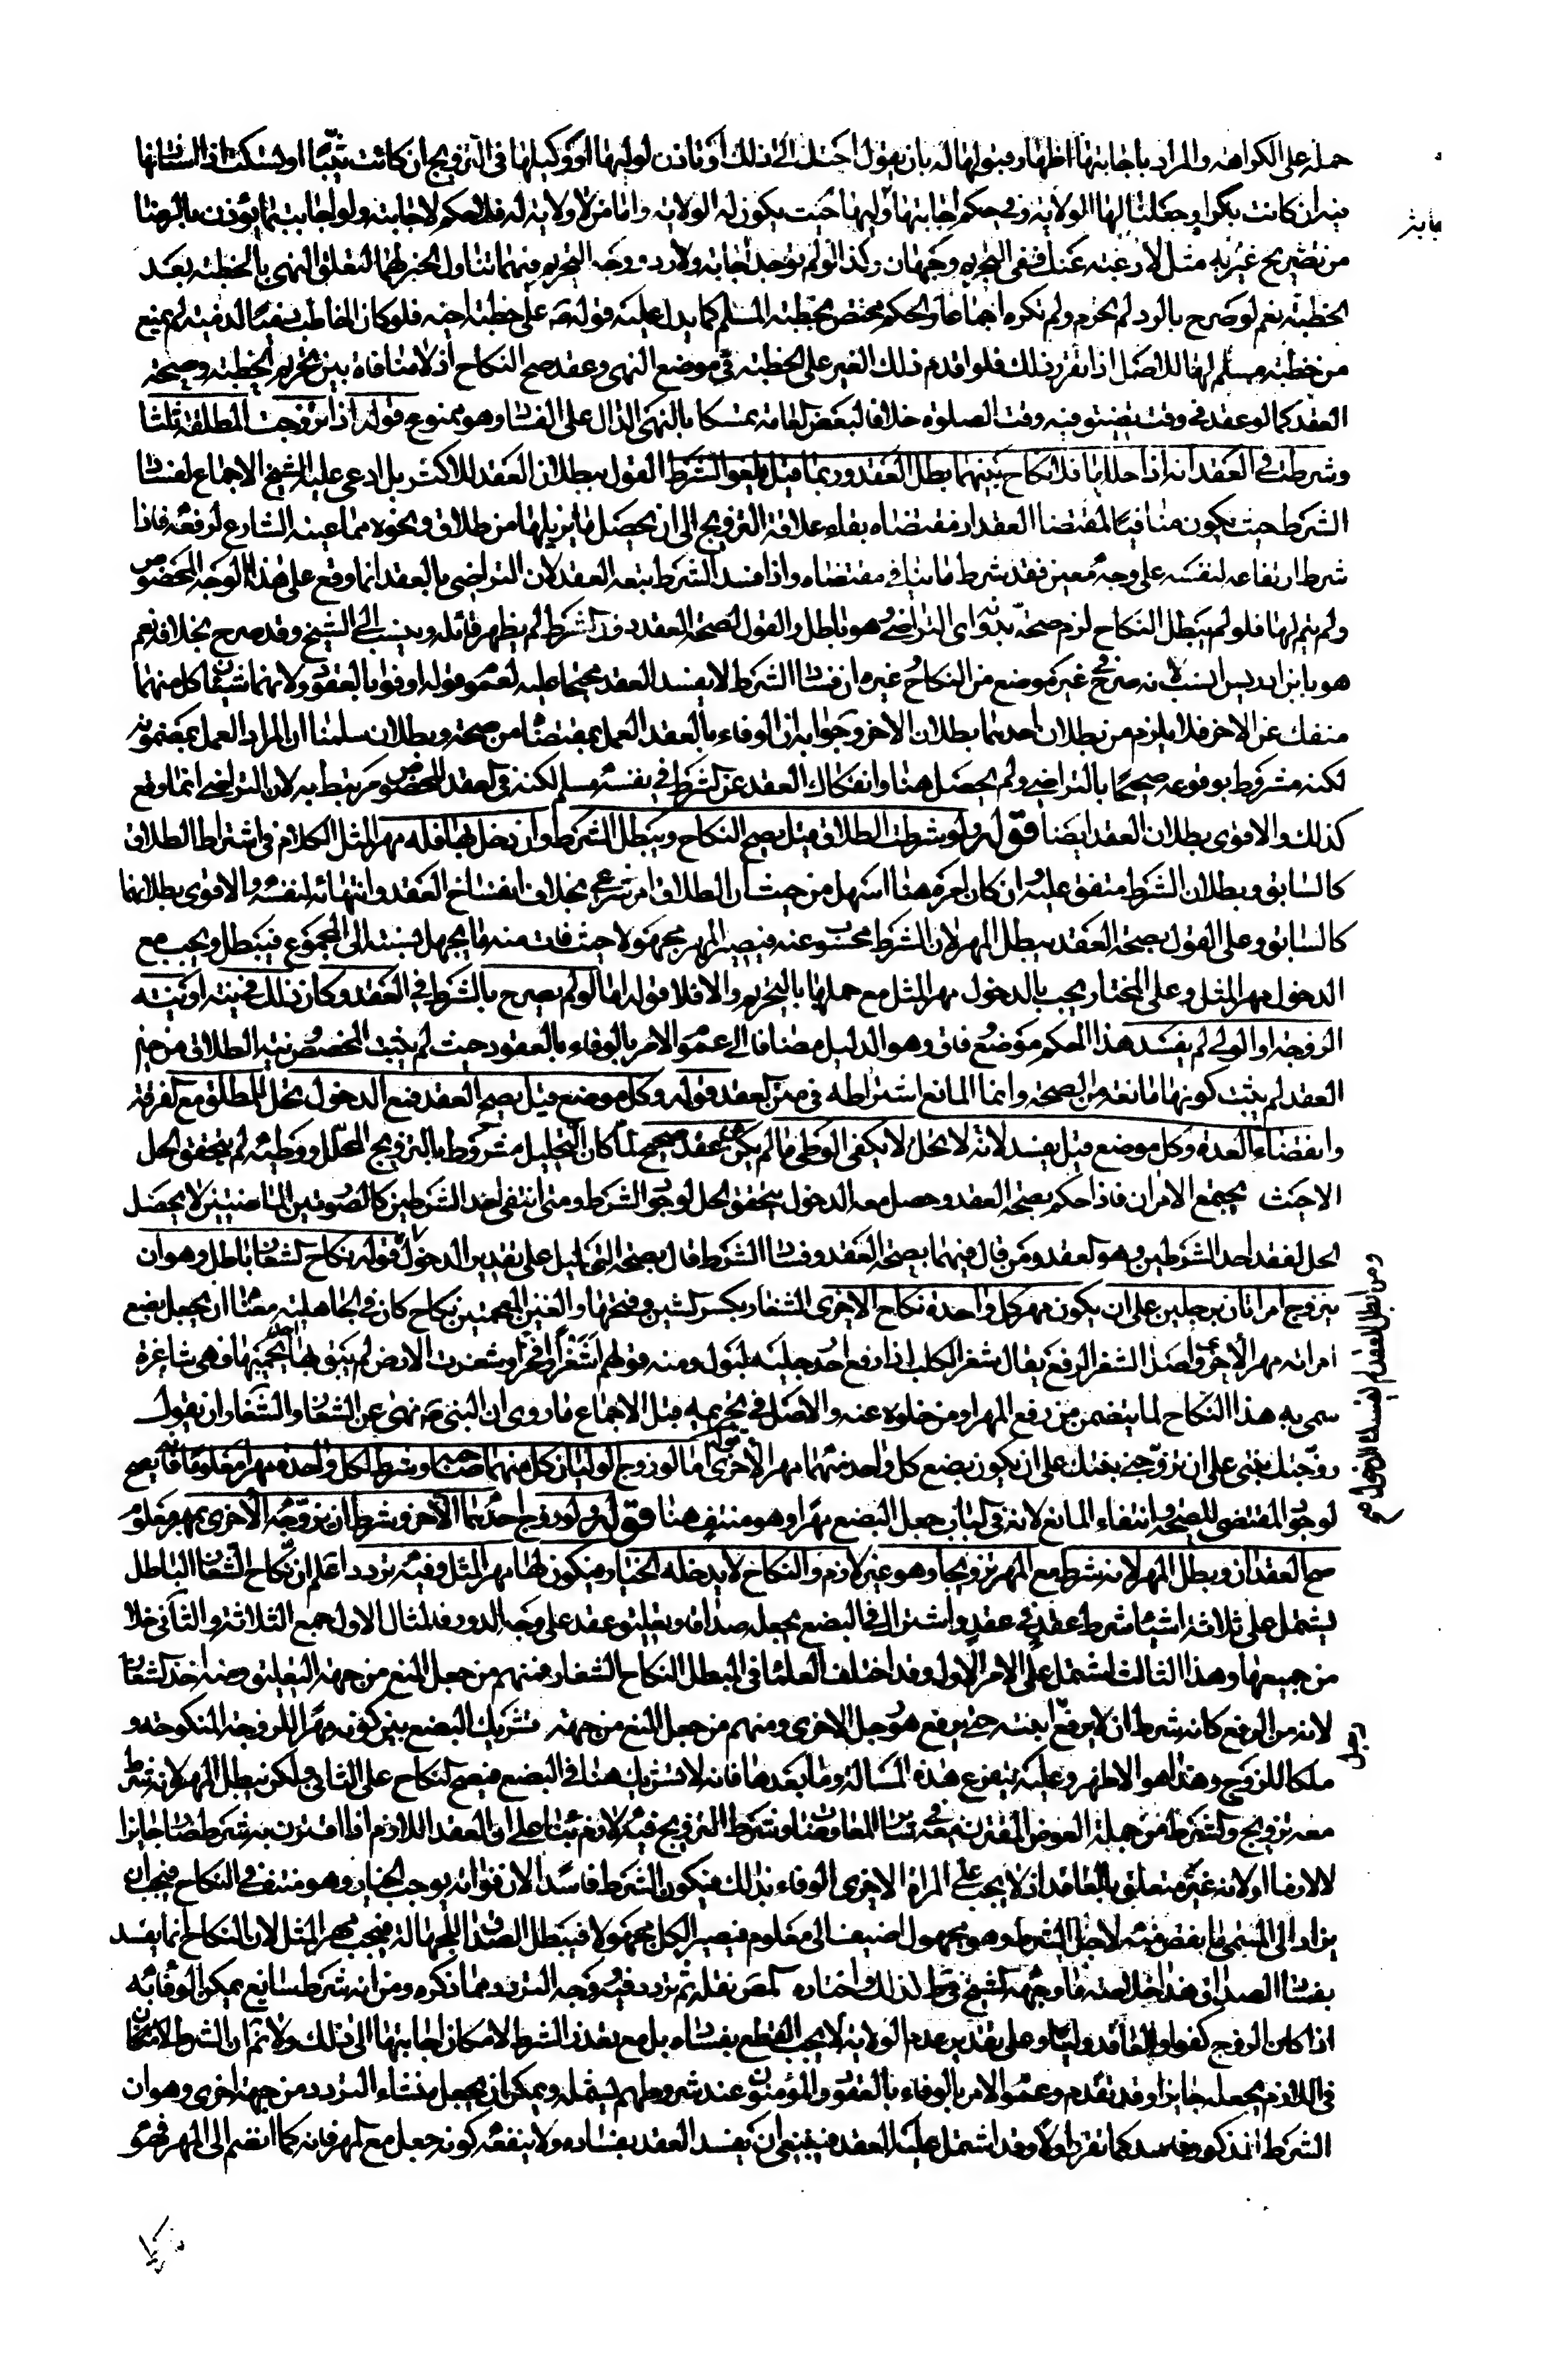 حمله على الكراهة والمراد باجابتها اظهار قبولها له بان يقول اجبتك الى ذلك او تاذن لوليها او وكيلها في التزويج ان كانت ثيبا او تسكت اذا استاذنها
فيه ان كانت بكرا وجعلنا لها الولاية وفي حكم اجابتها وليها حيث يكون له الولاية واما من لا ولاية له فلا حكم لاجابته ولو اجابت بما يؤذن بالرضا
من تصريح غيرته مثل لا رغبة عنك ففي التحريم وجهان وكذا لو لم يوجد اجابة ولا رد ووجه التحريم فيهما تناول الخبر لهما لتعلق النهي بالخطبة بعد
الخطبة نعم لو صرح بالرد لم يحرم ولم تكره اجماعا والحكم مختص بخطبة المسلم كما يدل عليه قوله ص على خطبة اخيه فلو كان الخاطب ذميا لذمية لم يمنع
من خطبة مسلم لها للاصل اذا تقرر ذلك فلو اقدم ذلك الغير على الخطبة في موضع النهي وعقد صح النكاح اذ لا منافاة بين تحريم الخطبة وصحة
العقد كما لو عقد في وقت تضيق فيه وقت الصلوة خلافا لبعض العامة تمسكا بالنهي الدال على الفساد وهو ممنوع قوله اذا تزوجت المطلقة ثلثا
وشرطت في العقد انه اذا حللها فلا نكاح بينهما بطل العقد وربما قيل يلغو الشرط القول ببطلان العقد للاكثر بل ادعى عليه الشيخ الاجماع لفساد
الشرط حيث يكون منافيا لمقتضا العقد اذ مقتضاه بقاء علاقة التزويج الى ان يحصل ما يزيلها من طلاق ونحوه مما عينه الشارع لرفعه فاذا
شرط ارتفاعه لنفسه على وجه معين فقد شرط ما ينافي مقتضاه واذا فسد الشرط يتبعه العقد لان التراضي بالعقد انما وقع على هذا الوجه المخصوص
ولم يتم لها فلو لم يبطل النكاح لزم صحته بدون التراضي وهو باطل والقول لصحة العقد دون الشرط لم يظهر قائله وينسب الى الشيخ وقد صرح بخلافه نعم
هو بابن ادريس انسب لانه صرح في غير موضع من النكاح وغيره ان فساد الشرط لا يفسد العقد محتجا عليه لعموم قوله اوفوا بالعقود ولانهما شيئان كل منهما
منفك عن الاخر فلا يلزم من بطلان احدهما بطلان الاخر وجوابه ان الوفاء بالعقد العمل بمقتضاه من صحة وبطلان سلمنا ان المراد العمل بمضمونه
لكنه مشروط بوقوعه صحيحا بالتراضي ولم يحصل هنا وانفكاك العقد عن الشرط في نفسه مسلم لكنه في العقد المخصوص مرتبط به لان التراضي انما وقع
كذلك والاقوى بطلان العقد ايضا قوله ولو شرطت الطلاق قيل يصح النكاح ويبطل الشرط وان دخل بها فله مهر المثل الكلام في اشتراط الطلاق
كالسابق وبطلان الشرط متفق عليه وان كان امره هنا اسهل من حيث ان الطلاق امر شرعي بخلاف انفساخ العقد وانتهائه لنفسه والاقوى بطلانهما
كالسابق وعلى القول بصحة العقد يبطل المهر لان الشرط محسوب عنه فيصير المهر مجهولا حيث فات منه ما يجهل نسبته الى المجموع فيبطل ويجب مع
الدخول مهر المثل وعلى المختار يجب بالدخول مهر المثل مع جهلها بالتحريم والا فلا قوله اما لو لم يصرح بالشرط في العقد وكان ذلك في نيته او نية
الزوجة او الولي لم يفسد هذا الحكم موضع وفاق وهو الدليل مضافا الى عموم الامر بالوفاء بالعقود حيث لم يثبت المخصص نية الطلاق من حين
العقد لم يثبت كونها مانعة من الصحة وانما المانع اشتراطه في متن العقد قوله وكل موضع قيل يصح العقد فمع الدخول تحل للمطلق مع الفرقة
وانقضاء العدة وكل موضع قيل يفسد لانه لا تحل لا يكفي الوطي ما لم يكن عن عقد صحيح لما كان التحليل مشروطا بالتزويج المحلل ووطيه لم يتحقق الحل
الا حيث يجتمع الامران فاذا حكم بصحة العقد وحصل معه الدخول يتحقق الحل لوجود الشرط ومتى انتفى احد الشرطين كالصورتين الماضيتين لا يحصل
الحل لفقد احد الشرطين وهو العقد ومن قال فيهما بصحة العقد وفساد الشرط قال بصحة التحليل على تقدير الدخول قوله نكاح الشغار باطل وهو ان
تتزوج امراتان برجلين على ان يكون مهر كل واحدة نكاح الاخرى الشغار بكسر الشين وفتحها والغين المعجمتين نكاح كان في الجاهلية معناه ان يجعل بضع
امراته مهر الاخرى واصل الشغر الرفع يقال شغر الكلب اذا رفع احد رجليه ليبول ومنه قولهم اشغرا وفخرا وشغرت الارض لم يبق بها احد يحميها وهي شاغرة
سمي به هذا النكاح لما يتضمن من رفع المهر او من خلوه عنه والاصل في تحريمه قبل الاجماع ما روى ان النبي ص نهى عن الشغار والشغار ان يقول
زوجتك بنتي على ان تزوجني بنتك على ان يكون بضع كل واحد منهما مهر الاخرى قوله اما لو زوج الوليان كل منهما صاحبه وشرط لكل واحدة مهرا معلوما فانه يصح
لوجود المقتضي للصحة وانتفاء المانع لانه في الباب جعل البضع مهرا وهو منتف هنا قوله ولو زوج احدهما الاخر وشرط ان يزوجه الاخرى بمهر معلوم
صح العقدان وبطل المهر لانه شرط مع المهر تزويجا وهو غير لازم والنكاح لا يدخله الخيار فيكون لها مهر المثل وفيه تردد اعلم ان نكاح الشغار الباطل
يشتمل على ثلاثة اشياء شرط عقد في عقد واشتراك في البضع بجعله صداقا وتعليق عقد على وجه الدور فالمثال الاول جمع الثلاثة والثاني خلا
من جميعها وهذا الثالث اشتمل على الامر الاول وقد اختلف العلماء في المبطل لنكاح الشغار فمنهم من جعل المنع من جهة التعليق ومنه اخذ الشغار
لانه من الرفع كانه شرط ان لا يرفع ابنته حتى يرفع هو رجل الاخرى ومنهم من جعل المنع من جهة تشريك البضع بين كونه مهرا للزوجة المنكوحة و
ملكا للزوج وهذا هو الاظهر وعليه يتفرع هذه المسالة وما بعدها فانه لا تشريك هنا في البضع فيصح النكاح على الثاني ولكن يبطل المهر لانه شرط
معه تزويج والشرط من جملة العوض المقترن معه في سائر المعاوضات وشرط التزويج فيه لازم بناء على ان العقد اللازم اذا اقترن به شرط صار جايزا
لا لازما او لانه غير متعلق بالعاقد اذ لا يجب على المراة الاخرى الوفاء بذلك فيكون الشرط فاسدا لان فواته يوجب الخيار وهو منتف في النكاح فيجب ان
يزاد الى المسمى ما نقص منه لاجل الشرط وهو مجهول اضيف الى معلوم فيصير الكل مجهولا فيبطل الصداق للجهالة فيجب مهر المثل لان النكاح انما يفسد
بفساد الصداق هذا خلاصة ما وجهه الشيخ في ط لذلك واختاره المص نقله ثم تردد فيه ووجه التردد مما ذكره ومن انه شرط سايغ يمكن الوفاء به
اذا كان الزوج كفوا والعاقد وليا وعلى تقدير عدم الولاية لا يجب القطع بفساده بل مع تعذر الشرط لامكان اجابتها الى ذلك ولا نم ان الشرط الجائز
في اللازم يجعله جايزا وقد تقدم وعموم الامر بالوفاء بالعقود والمؤمنون عند شروطهم يشمله ويمكن ان يجعل منشاء التردد من جهة اخرى وهو ان
الشرط المذكور فاسد كما تقرر اولا وقد اشتمل عليه العقد فينبغي ان يفسد العقد بفساده ولا ينفعه كونه جعل مع المهر فانه كما انضم الى المهر فهو